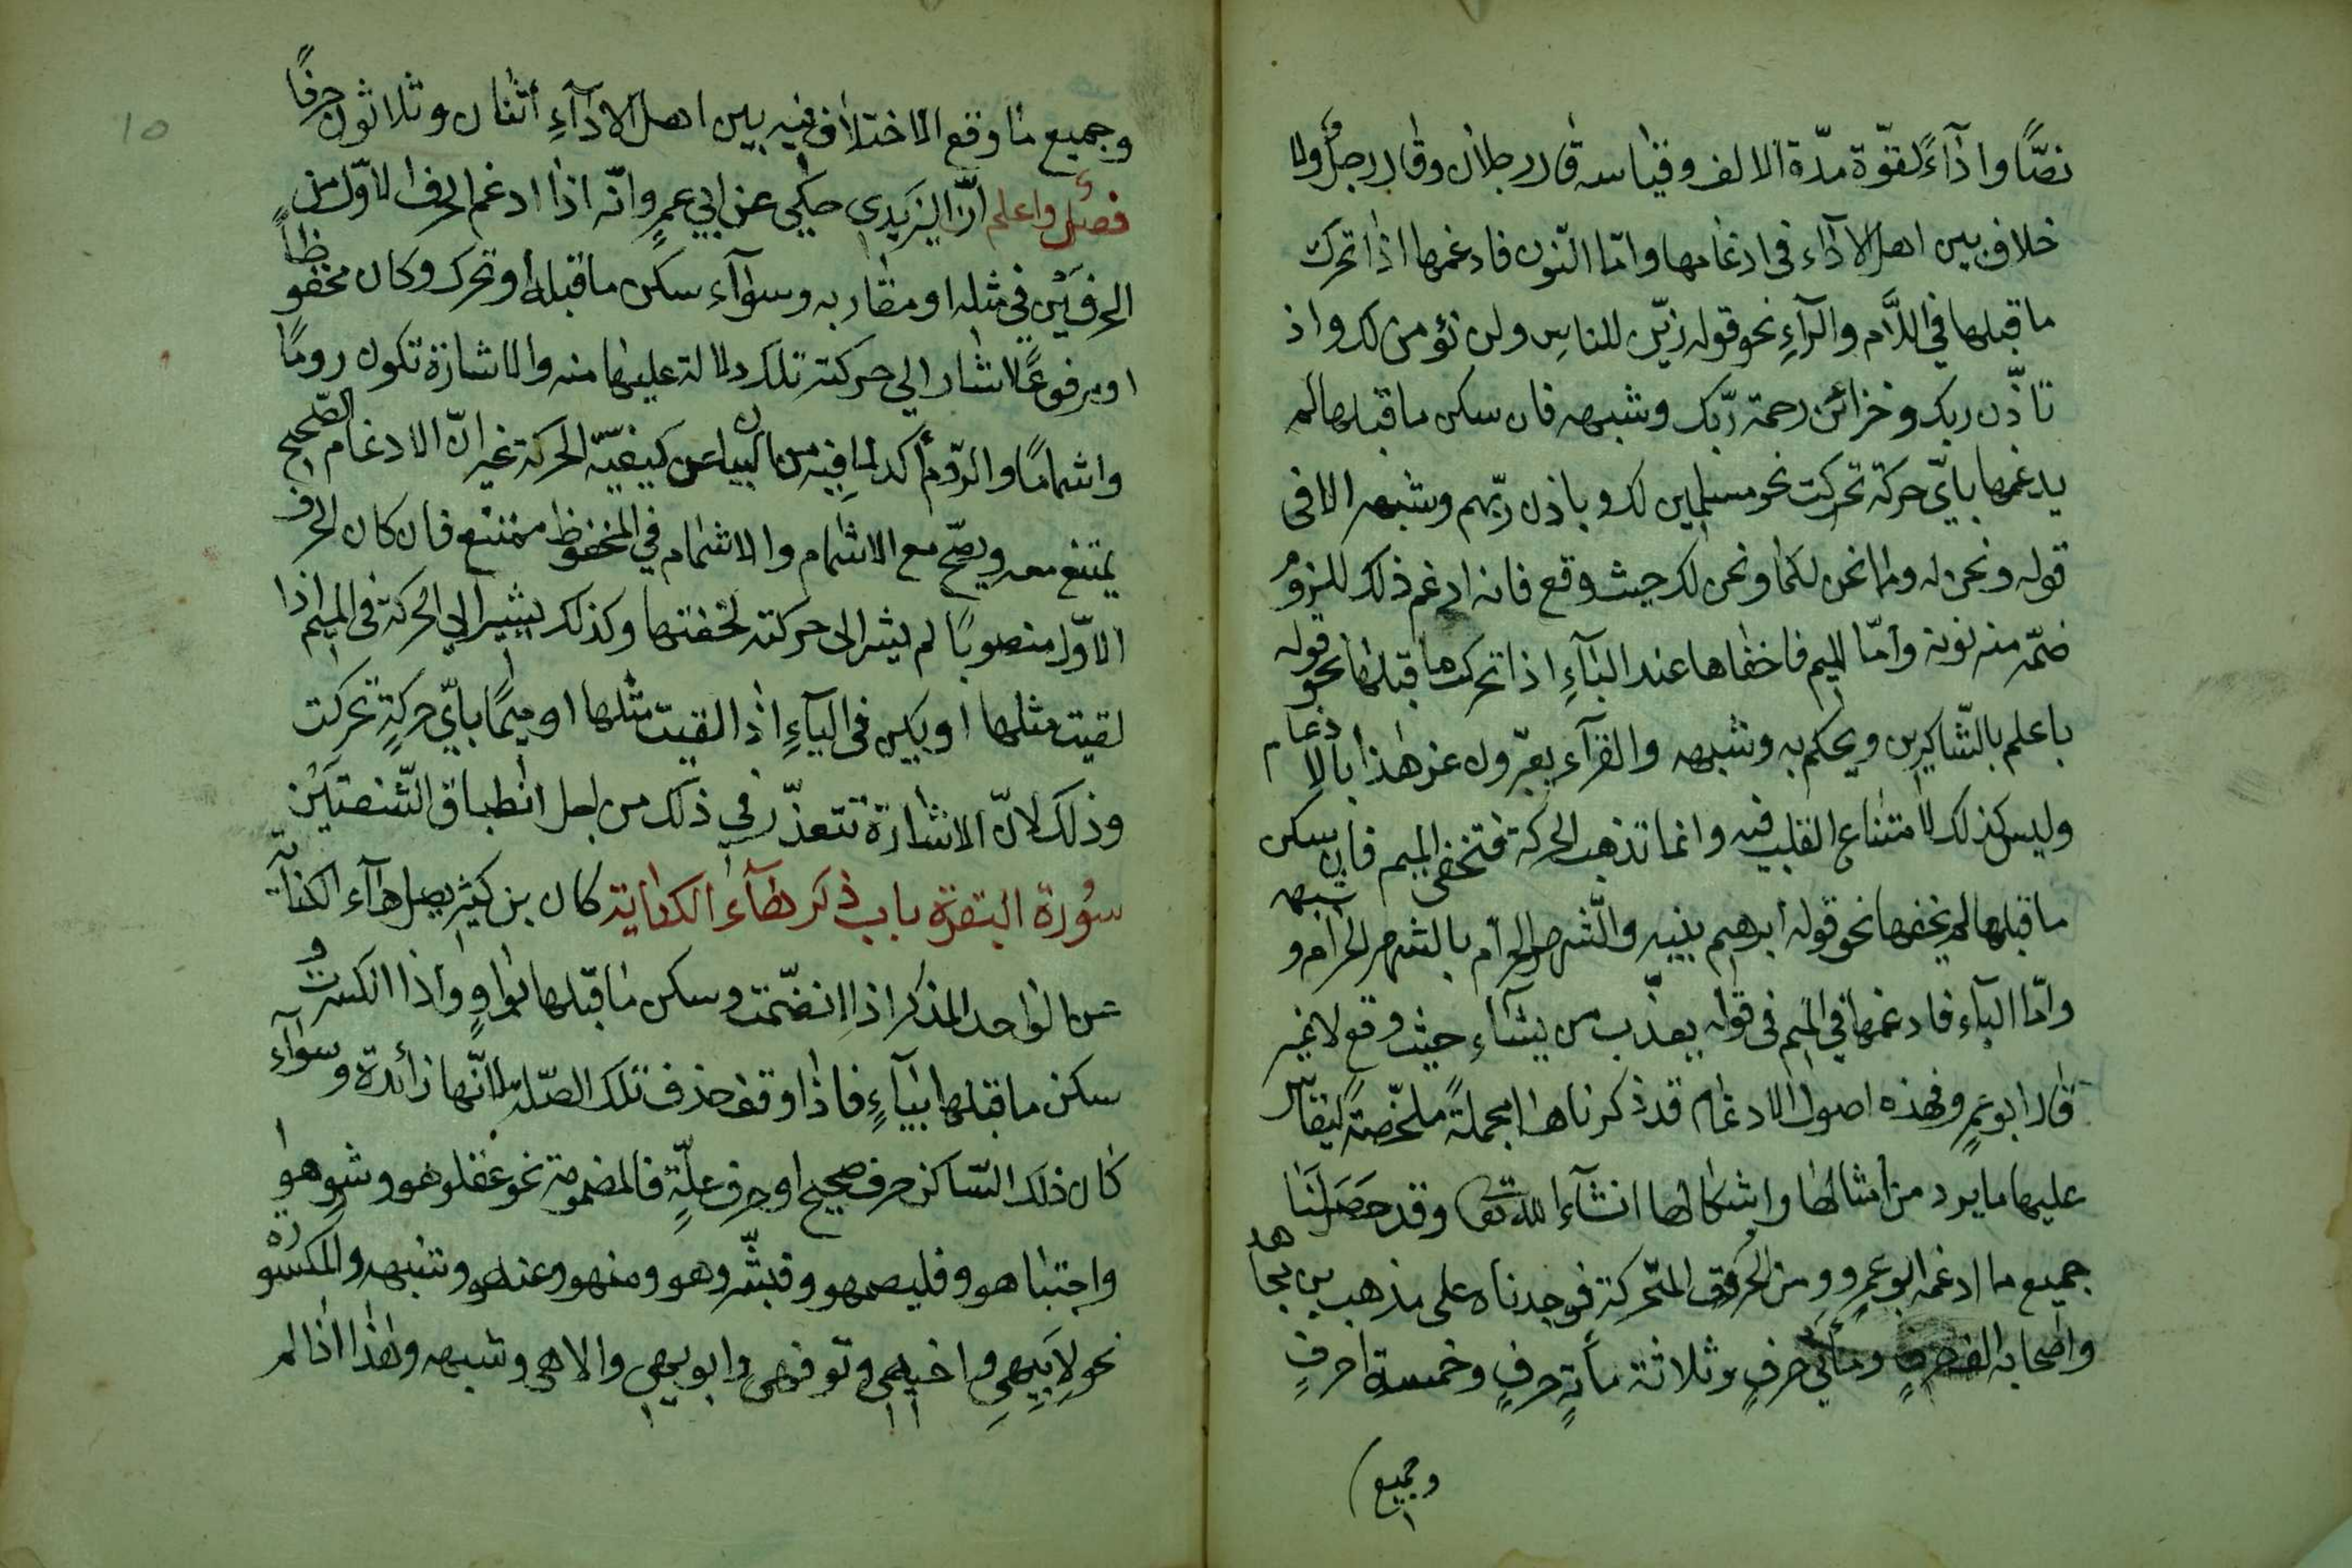 نصّا واداءً لقوّة مدّة الالف وقياسه قال رجلان وقال رجل ولا
خلاف بين اهل الاداء فى ادغامها وامّا النّون فادغمها اذا تحرك
ما قبلها في اللّام والرّآءِ نحو قوله زيّن للناسِ ولن نؤمن لك واذ
تاذّن ربك وخزائن رحمة ربّك وشبهه فان سكن ما قبلها لم
يدغمها بايّ حركة تحركت نحو مسلمين لك وباذن ربّهم وشبهه الا فى
قوله ونحن له وما نحن لكما ونحن لك حيث وقع فانه ادغم ذلك للزوم
ضمّه منه نونه وامّا الميم فاخفاها عند البآءِ اذا تحرك ما قبلها نحو قوله
باعلم بالشّاكرين ويحكم به وشبهه والقرآء يعبّرون عن هذا بالادغام
وليس كذلك لامتناع القلب فيه وانما تذهب الحركة فتخفى الميم فان سكن
ما قبلها لم يخفها نحو قوله ابرهيم بنيه والشّهر الحرام بالشهر الحرام وشبهه
وامّا البآء فادغمها في الميم فى قوله يعذّب من يشآء حيث وقع لا غير
قال ابو عمرٍو فهذه اصول الادغام قد ذكرناها مجملةً ملخّصةً ليقاس
عليها ما يرد من امثالها واشكالها انشآء الله تعا وقد حَصَلنَا
جميع ما ادغمه ابو عمرٍو من الحروف المتّحركة فوجدناه على مذهب بن مجاهد
واصحابه الف حرفٍ ومأتي حرفٍ وثلاثة مأيةِ حرفٍ وخمسة احرفٍ
وجميع
10
وجميع ما وقع الاختلاف فيه بين اهل الادآءِ أثنان وثلاثون حرفًا
فصل واعلم انّ اليَزيدى حكي عن ابي عمرٍو انّه اذا ادغم الحرف الاوّل من
الحرفَيْن في مثله او مقاربه وسوآء سكن ما قبله او تحرك وكان مخفوظاً
او مرفوعًا اشار الي حركته تلك دلالة عليها منه والاشارة تكون رومًا
واشمامًا والرّوم أكد لما فيه من البيان عن كيفيّة الحركة غير انّ الادغام الصّحيح
يمتنع معه ويصحّ مع الاشمام والاشمام في المخفوظ ممتنع فان كان الحرف
الاوّل منصوبًا لم يشر الى حركته لخفتها وكذلك يشير الي الحركة فى الميم اذا
لقيت مثلها او بكيس فى البآءِ اذا لقيت مثلها او ميمًا بايّ حركةٍ تحركت
وذلك لانّ الاشارة تتعذّر في ذلك من اجل انطباق الشّفتيَنْ
سُورة البقرة باب ذكر هآء الكناية كان بن كثير يصل هآء الكناية
عن الواحد المذكر اذا انضمّت وسكن ما قبلها بواوٍ واذا انكسرت و
سكن ما قبلها بيآءٍ فاذا وقف حذف تلك الصّلة لانّها زائدة وسوآء
كان ذلك السّاكن حرف صحيح او حرف علّةٍ فالمضمومة نحو عقلوهو وشروهو
واجتباهو وفليصمهو وفبشّروهو ومنهو وعنهو وشبهه والمكسوره
نحو لِابِيهِي واخيهي وتوفيهي وابويهي والاهي وشبهه وهذا اذا لم